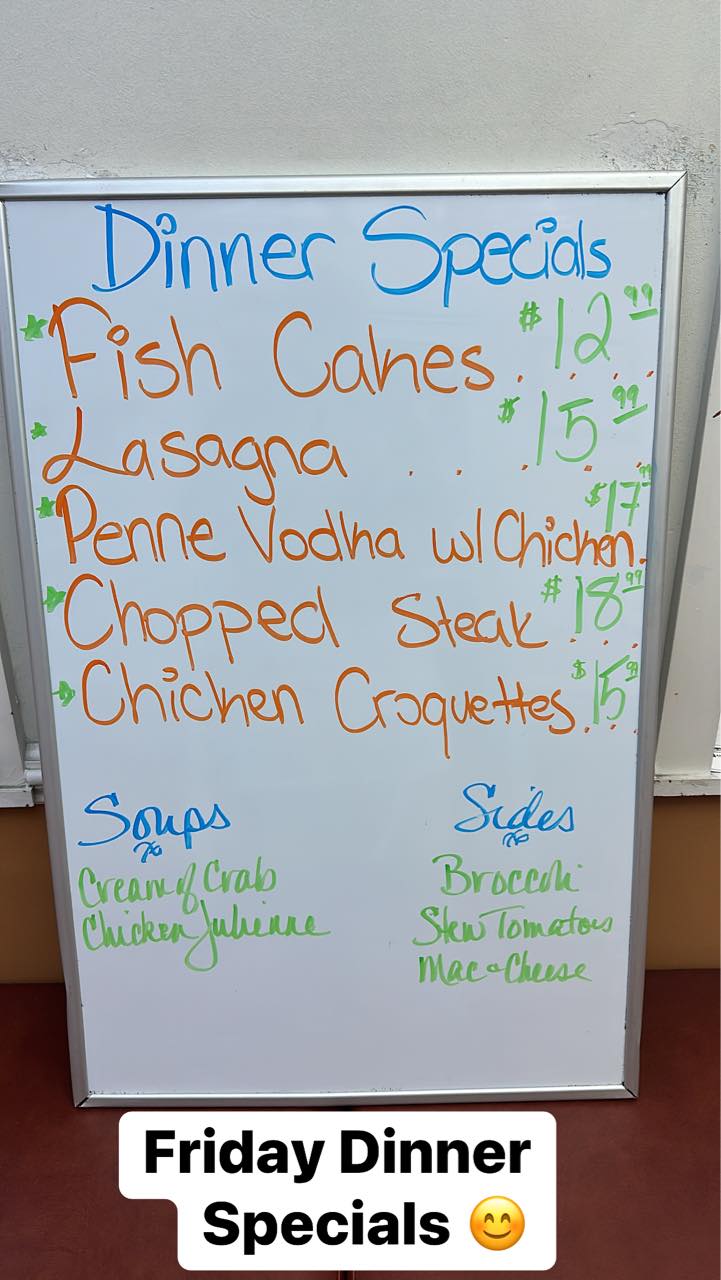 Dinner Specials
Fish Cakes. . . . $12.99
Lasagna . . . . . $15.99
Penne Vodka w/ Chicken. $17.99
Chopped Steak . . . $18.99
Chicken Croquettes. . . . $15.99
Soups
Cream of Crab
Chicken Julienne
Sides
Broccoli
Stew Tomatoes
Mac & Cheese
Friday Dinner
Specials 😊